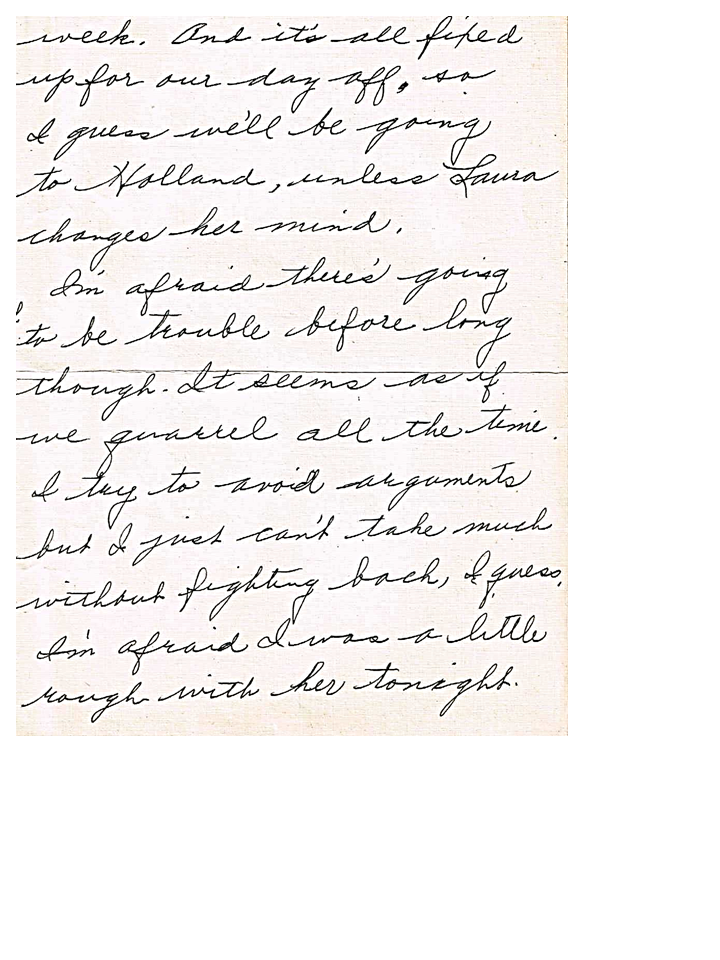 week. And it's all fixed
up for our day off, so
I guess we'll be going
to Holland, unless Laura
changes her mind.
I'm afraid there's going
to be trouble before long
though. It seems as if
we quarrel all the time.
I try to avoid arguments
but I just can't take much
without fighting back, I guess.
I'm afraid I was a little
rough with her tonight.